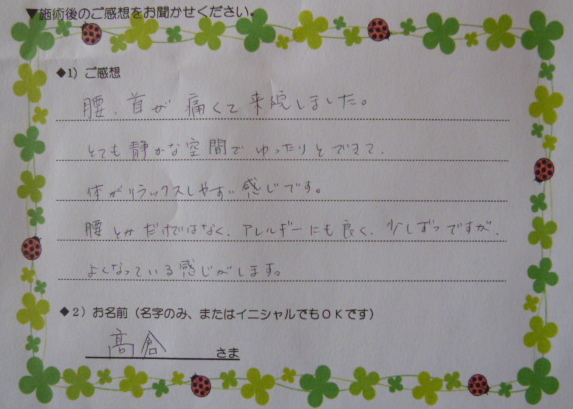 ▼施術後のご感想をお聞かせください。
◆1）ご感想
腰、首が痛くて来院しました。
とても静かな空間でゆったりとできて、
体がリラックスしやすい感じです。
腰とかだけではなく、アレルギーにも良く、少しずつですが、
よくなっている感じがします。
◆2）お名前（名字のみ、またはイニシャルでもOKです）
高倉 さま